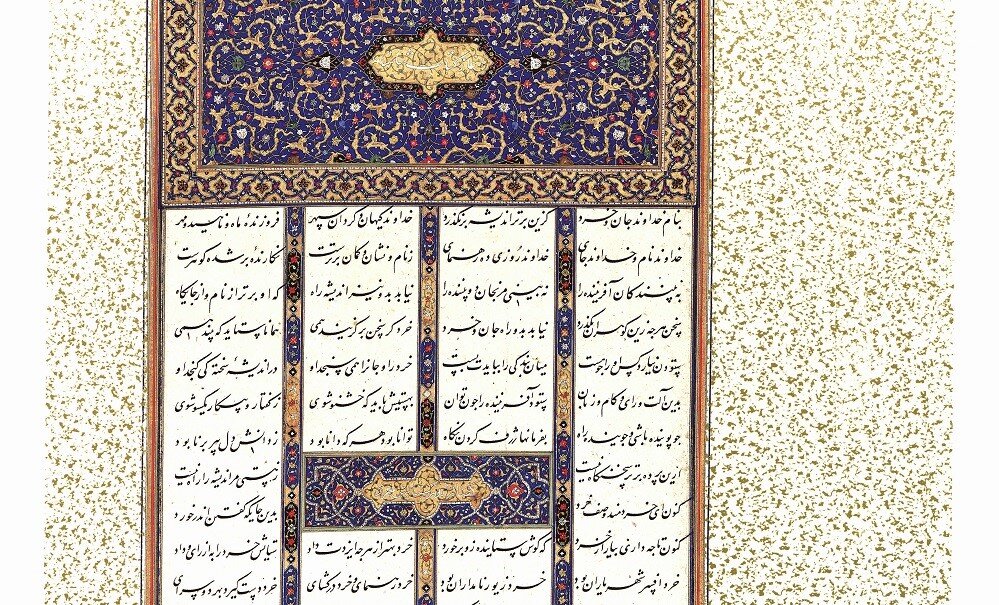 بنام خداوند جان و خرد کزین برتر اندیشه بر نگذرد خداوند کیهان و گردان سپهر فروزندهٔ ماه و ناهید و مهر
خداوند نام و خداوند جای خداوند روزی ده رهنمای ز نام و نشان و گمان برترست نگارندهٔ بر شده گوهرست
به بینندگان آفریننده را نه بینی مرنجان دو بیننده را نیابد بدو نیز اندیشه راه که او برتر از نام و از جایگاه
سخن هرچه زین گوهران بگذرد نیابد بدو راه جان و خرد خرد گر سخن برگزیند همی همانا ستاید که بیند همی
ستودن نیارد کس او را چو هست میان بندگی را ببایدت بست خرد را و جانرا همی سنجد او در اندیشهٔ سخته کی گنجد او
بدین آلت و رای و کام و زبان ستود آفریننده را چون توان بهستیش باید که خستو شوی ز گفتار و پیکار یکسو شوی
چو پوینده باشی و جوینده راه بفرمانها ژرف کردن نگاه توانا بود هر که دانا بود ز دانش دل پیر برنا بود
ازین پرده برتر سخن گاه نیست ز هستی مر اندیشه را راه نیست
کنون ای خردمند وصف خرد بدین جایگه گفتن اندر خورد
کنون تا چه داری بیار از خرد که گوش ستاینده زو برخورد خرد بهتر از هرچه ایزدت داد ستایش خرد را به از رای داد
خرد افسر شهریاران بود خرد زیور نامداران بود خرد رهنمای و خرد دلگشای خرد دست گیرد بهر دو سرای